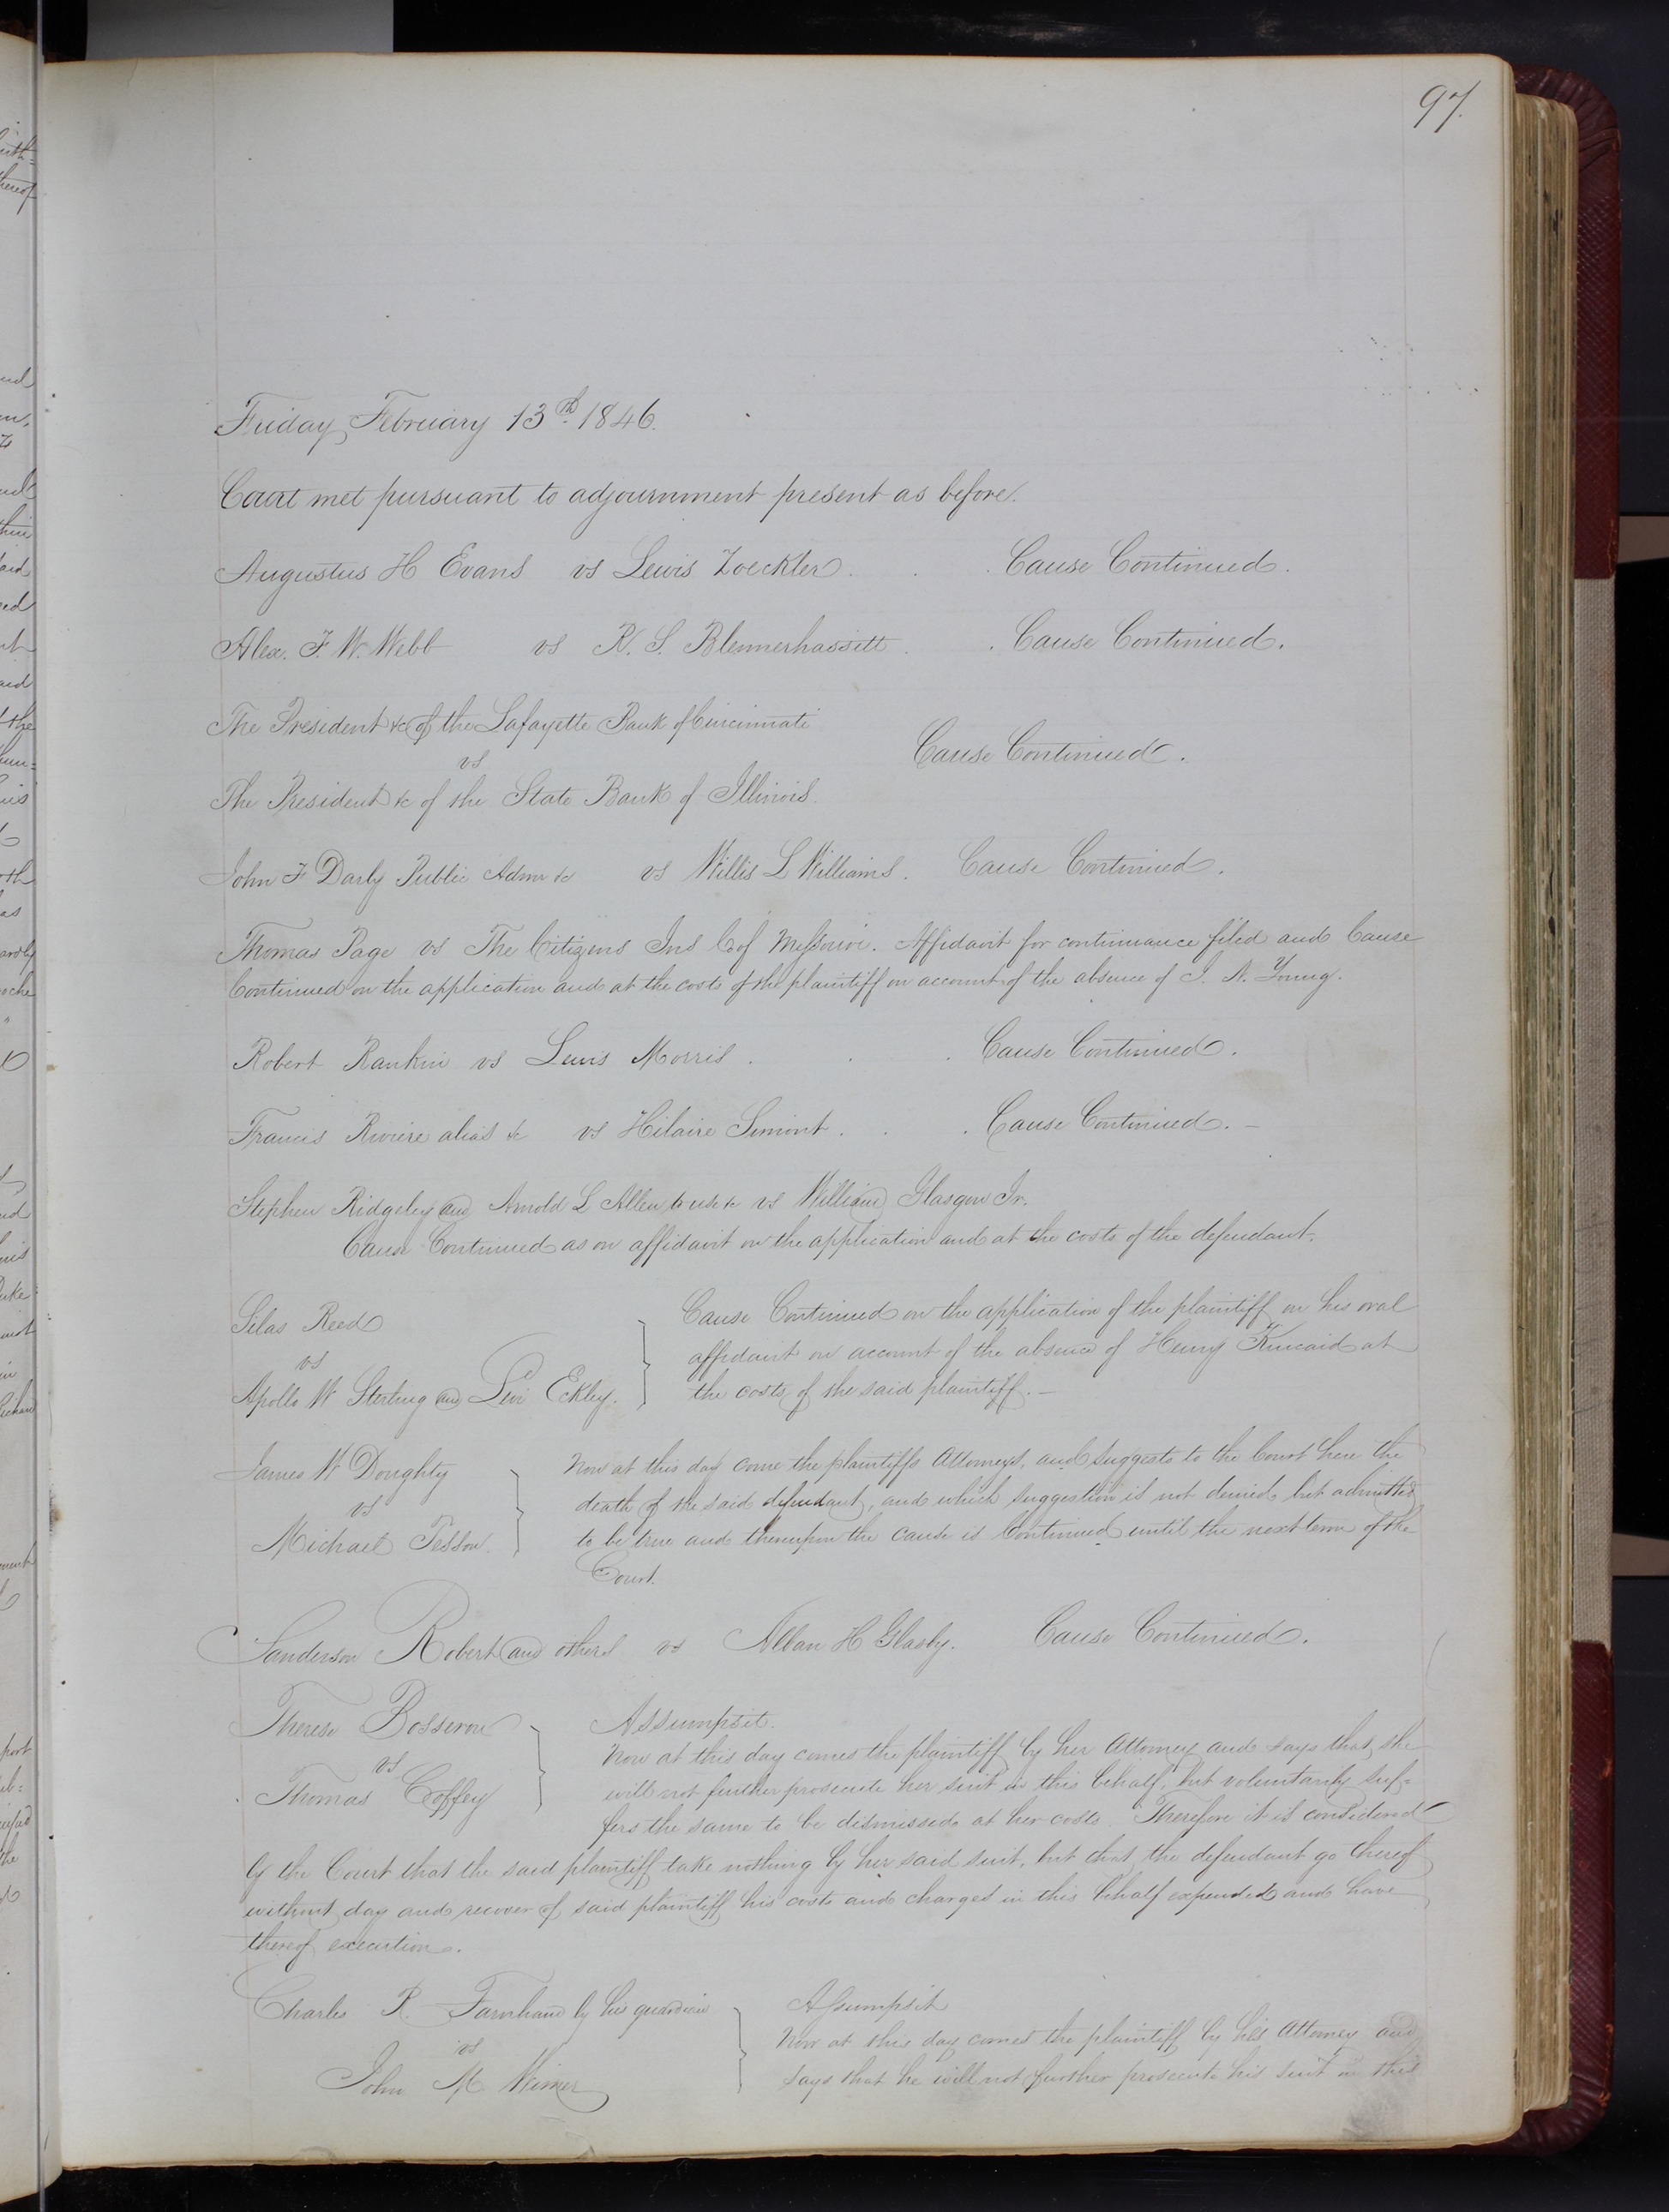 97.
Friday February 13th 1846.
Court met pursuant to adjournment present as before.
Augustus H Evans vs Lewis Zoeckler . . . Cause Continued.
Alex. F. W. Webb vs R. S. Blennerhassett . . Cause Continued.
The President &c of the Lafayette Bank of Cincinnati
vs
Cause Continued.
The President &c of the State Bank of Illinois.
John F Darby Public Admr &c vs Willis L Williams. Cause Continued.
Thomas Page vs The Citizens Ins Co of Missouri. Affidavit for continuance filed and Cause
Continued on the application and at the costs of the plaintiff on account of the absence of J. N. Young.
Robert Rankin vs Lewis Morris . . . Cause Continued.
Francis Riviere alias &c vs Hilaire Simont . . . Cause Continued. –
Stephen Ridgeley and Arnold L Allen to use &c vs William Glasgow Jr.
Cause Continued as on affidavit on the application and at the costs of the defendant.
Silas Reed
vs
Apollo W Sterling and Levi Eckley.
Cause Continued on the application of the plaintiff on his oral
affidavit on account of the absence of Henry Kincaid at
the costs of the said plaintiff. –
James W Doughty
vs
Michael Tesson.
Now at this day come the plaintiffs Attorneys, and suggests to the Court here the
death of the said defendant, and which suggestion is not denied, but admitted
to be true and thereupon the cause is Continued until the next term of the
Court.
Sanderson Robert and others vs Allan H Glasby. Cause Continued.
Therese Bosseron
vs
Thomas Coffey
Assumpsit.
Now at this day comes the plaintiff by her Attorney and says that she
will not further prosecute her suit in this behalf, but voluntarily suf=
fers the same to be dismissed at her costs. Therefore it is considered
by the Court that the said plaintiff take nothing by her said suit, but that the defendant go thereof
without day and recover of said plaintiff his costs and charges in this behalf expended and have
thereof execution.
Charles R. Farnham by his guardian
vs
John M Wimer
Assumpsit
Now at this day comes the plaintiff by his Attorney and
says that he will not further prosecute his suit in this